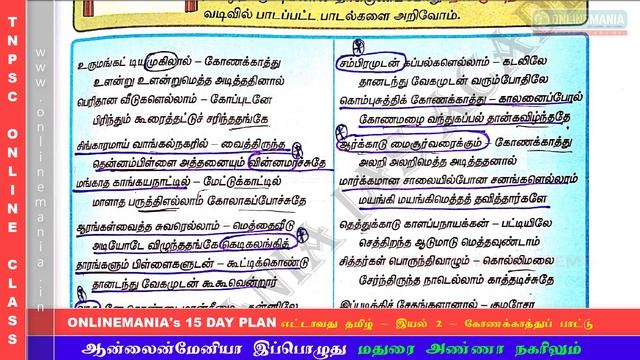 வடிவில் பாடப்பட்ட பாடல்களை அறிவோம்.
ONLINEMANIA
TNPSC ONLINE CLASS
www.onlinemania.in
உருமங்கட் டியமுகிலால் – கோணக்காத்து
உளன்று உளன்றுமெத்த அடித்ததினால்
பெரிதான வீடுகளெல்லாம் – கோப்புடனே
பிரிந்தும் கூரைத்தட்டுச் சரிந்ததங்கே
சிங்காரமாய் வாங்கல்நகரில் – வைத்திருந்த
தென்னம்பிள்ளை அத்தனையும் வின்னமாச்சுதே
மங்காத காங்கயநாட்டில் – மேட்டுக்காட்டில்
மாளாத பருத்திஎல்லாம் கோலாகப்போச்சுதே
ஆரங்கள்வைத்த சுவரெல்லாம் – மெத்தைவீடு
அடியோடே விழுந்ததங்கே கெடிகலங்கித்
தாரங்களும் பிள்ளைகளுடன் – கூட்டிக்கொண்டு
தானடந்து வேகமுடன் கூகூவென்றார்
சம்பிரமுடன் கப்பல்களெல்லாம் – கடலிலே
தானடந்து வேகமுடன் வரும்போதிலே
கொம்புசுத்திக் கோணக்காத்து – காலனைப்போல்
கோணமழை வந்துகப்பல் தான்கவிழ்ந்ததே
ஆர்க்காடு மைசூர்வரைக்கும் – கோணக்காத்து
அலறி அலறிமெத்த அடித்ததனால்
மார்க்கமான சாலையில்போன சனங்களெல்லாம்
மயங்கி மயங்கிமெத்தத் தவித்தார்களே
தெத்துக்காடு காளப்பநாயக்கன் – பட்டியிலே
செத்திறந்த ஆடுமாடு மெத்தவுண்டாம்
சித்தர்கள் பொருந்திவாழும் – கொல்லிமலை
சேர்ந்திருந்த நாடெல்லாம் காத்தடிச்சுதே
இப்படிக்குச் சேதங்களானால் – குமரேசா
ONLINEMANIA's 15 DAY PLAN எட்டாவது தமிழ் – இயல் 2 – கோணக்காத்துப் பாட்டு
ஆன்லைன்மேனியா இப்பொழுது மதுரை அண்ணா நகரிலும்